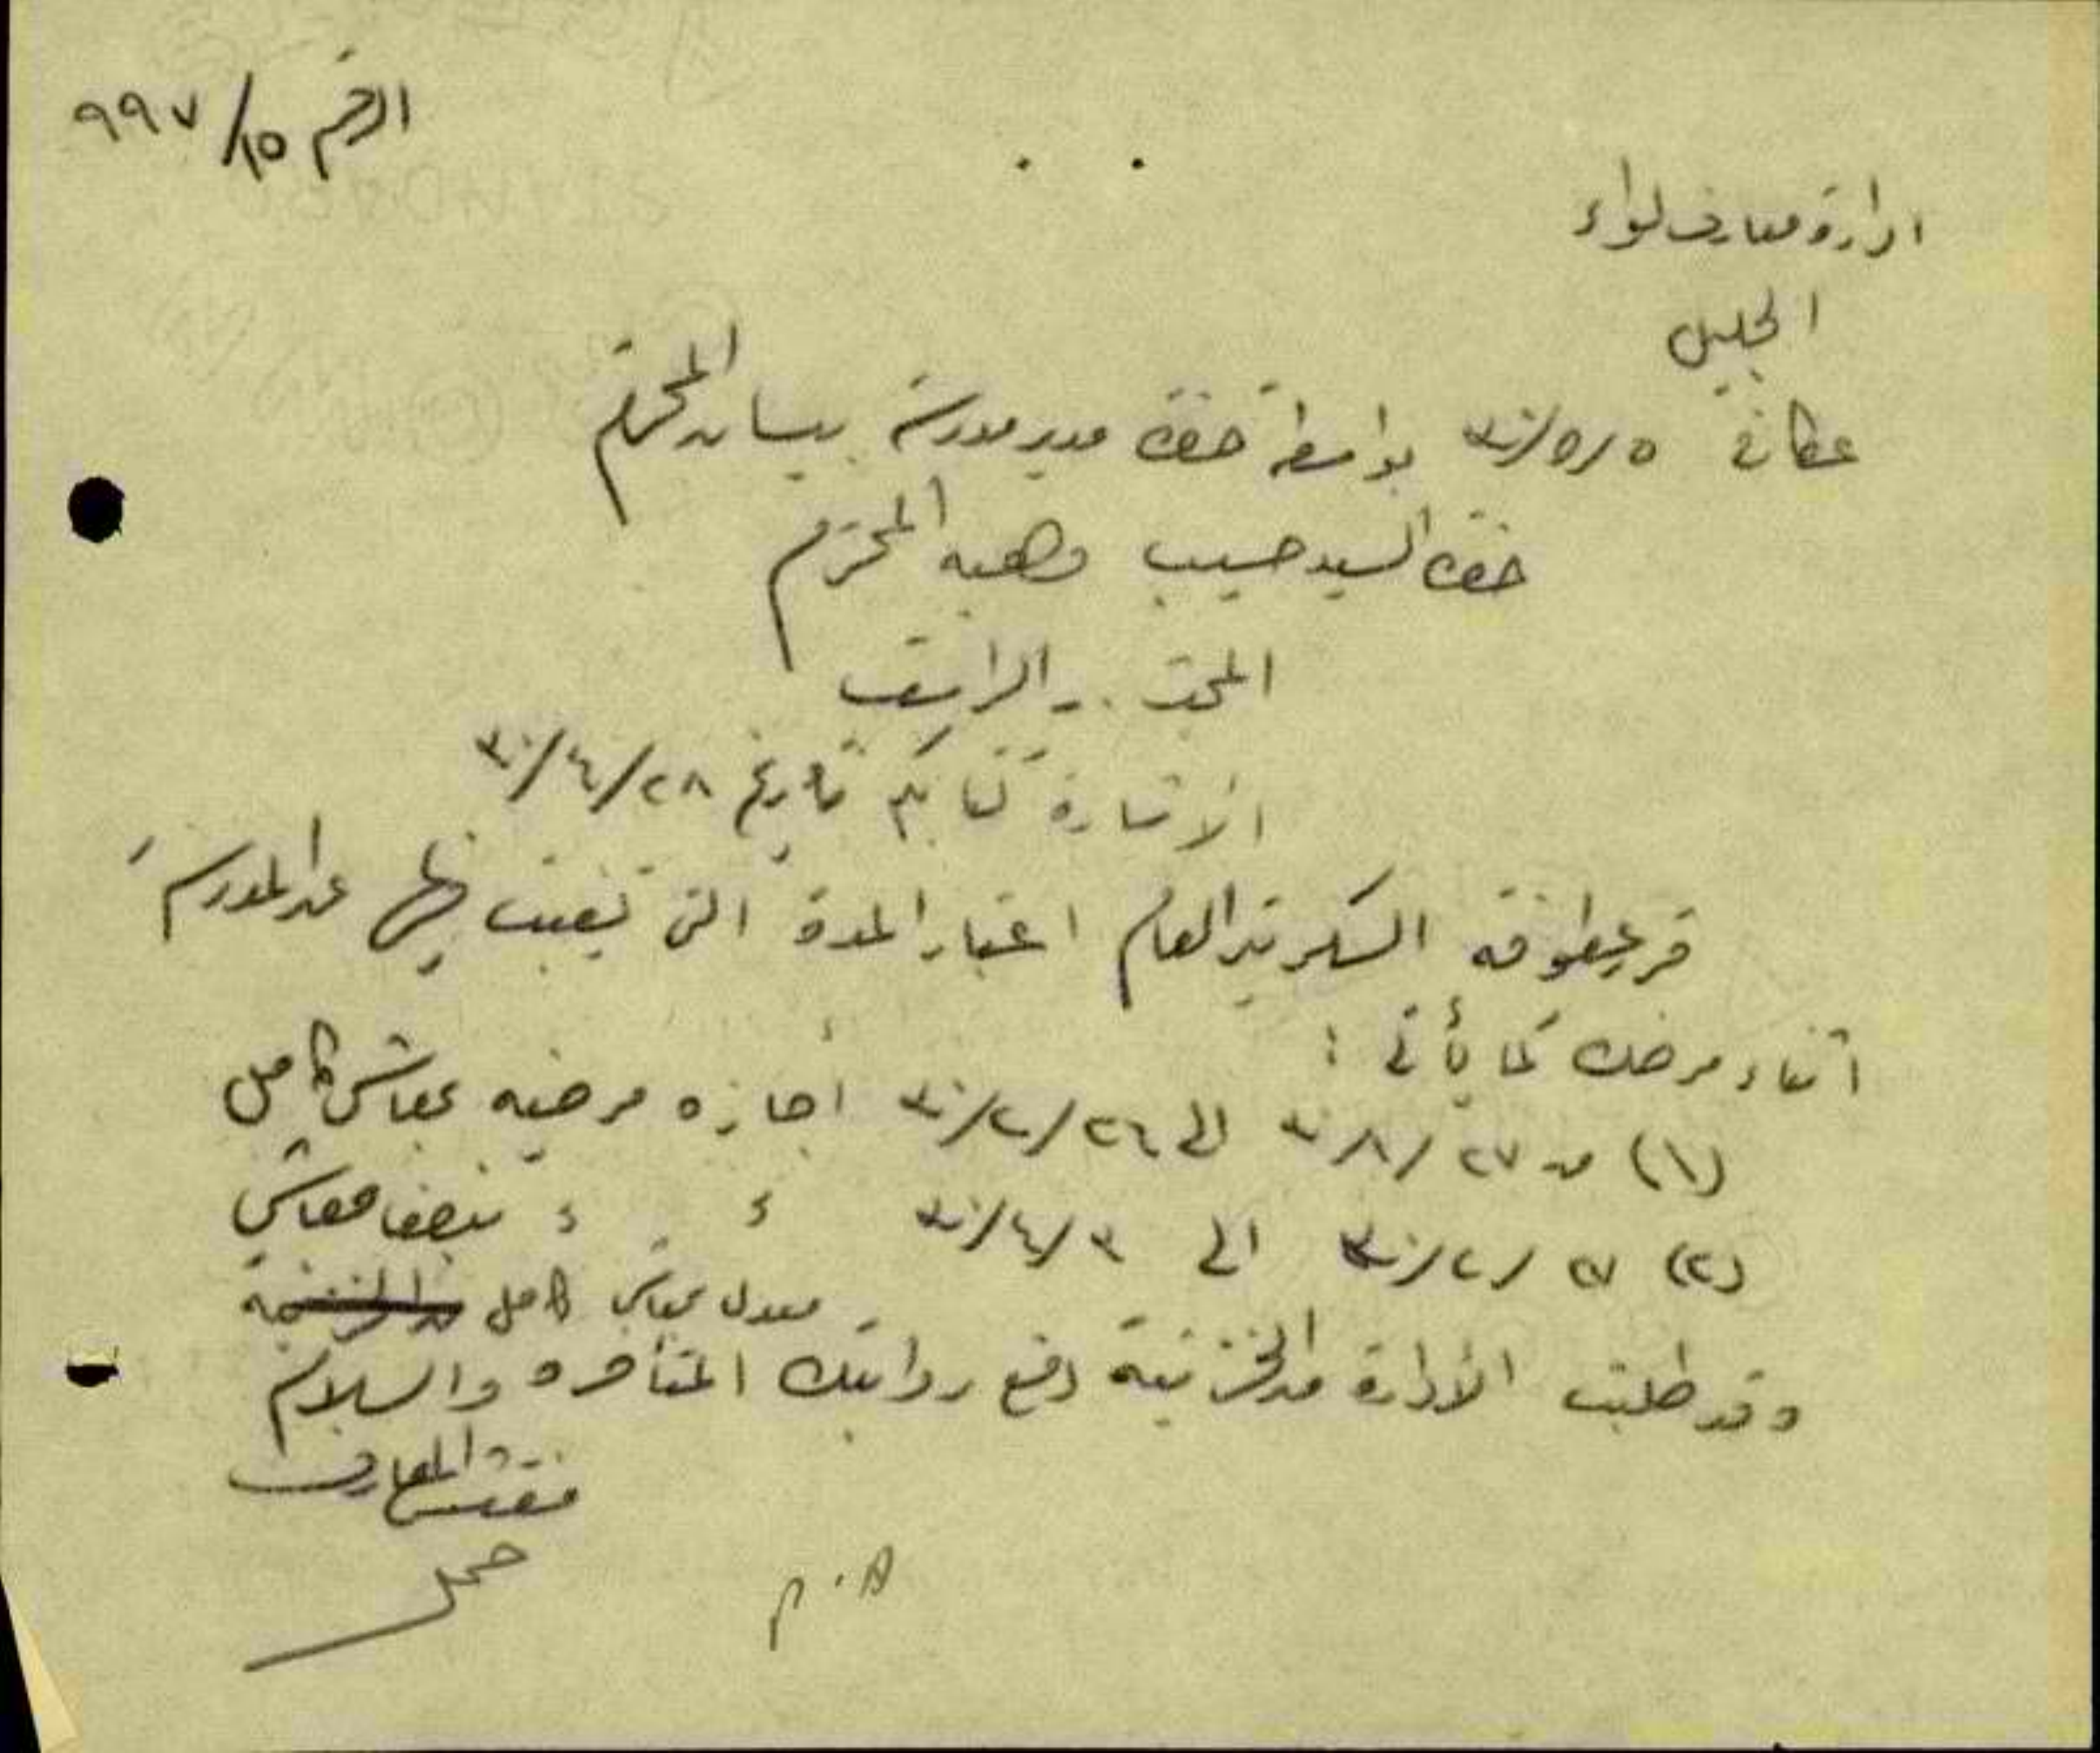 الرقم ١٥/٩٩٧
ادارة معارف لواء
الجليل
عكا في ٥/٥/٣٠ بواسطة حضرة مدير مدرسة بيسان المحترم
حضرة السيد حسيب وهبه المحترم
المبحث .. الراتب
الاشارة كتابكم تاريخ ٢٨/٤/٣٠
قرر عطوفة السكرتير العام اعتبار المدة التي تغيبت فيها عن المدرسة
اثناء مرضك كما يأتي :
(١) من ٢٧/٨/ الى ٢٦/٢/٣٠ اجازه مرضيه بمعاش كامل
(٢) ٢٧/٢/٣٠ الى ٣/٤/٣٠ ء ء بنصف معاش
معدل معاش كامل
وقد طلبت الادارة من الخزينة دفع رواتبك المتأخره والسلام
مفتش المعارف